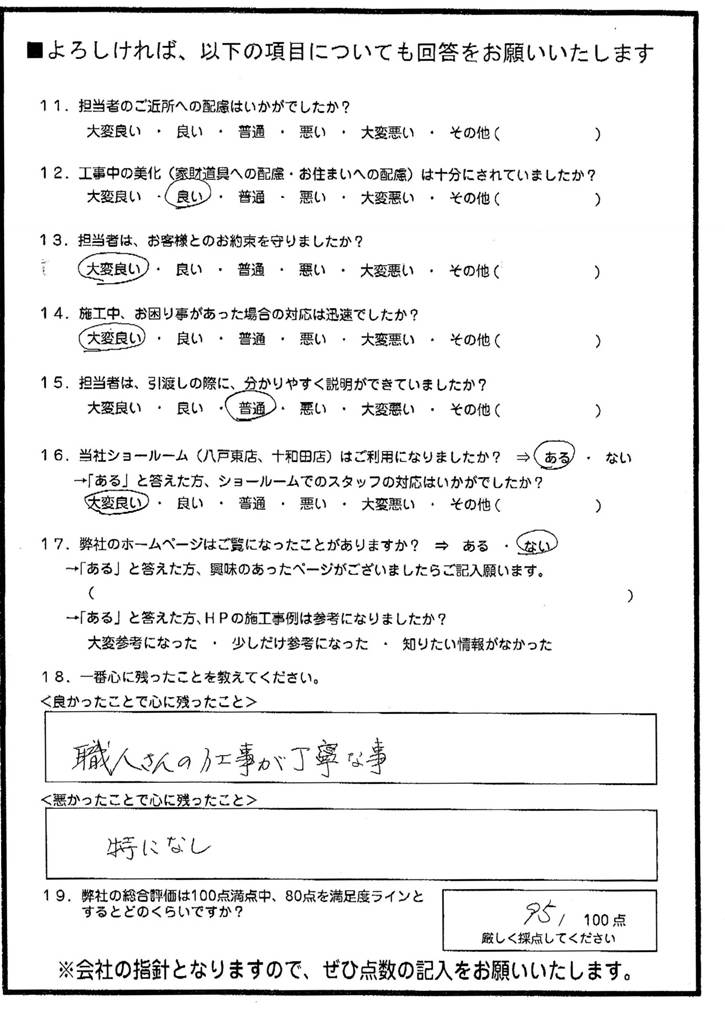 ■よろしければ、以下の項目についても回答をお願いいたします
11．担当者のご近所への配慮はいかがでしたか？
大変良い ・ 良い ・ 普通 ・ 悪い ・ 大変悪い ・ その他（ ）
12．工事中の美化（家財道具への配慮・お住まいへの配慮）は十分にされていましたか？
大変良い ・ 良い ・ 普通 ・ 悪い ・ 大変悪い ・ その他（ ）
13．担当者は、お客様とのお約束を守りましたか？
大変良い ・ 良い ・ 普通 ・ 悪い ・ 大変悪い ・ その他（ ）
14．施工中、お困り事があった場合の対応は迅速でしたか？
大変良い ・ 良い ・ 普通 ・ 悪い ・ 大変悪い ・ その他（ ）
15．担当者は、引渡しの際に、分かりやすく説明ができていましたか？
大変良い ・ 良い ・ 普通 ・ 悪い ・ 大変悪い ・ その他（ ）
16．当社ショールーム（八戸東店、十和田店）はご利用になりましたか？ ⇒ ある ・ ない
→「ある」と答えた方、ショールームでのスタッフの対応はいかがでしたか？
大変良い ・ 良い ・ 普通 ・ 悪い ・ 大変悪い ・ その他（ ）
17．弊社のホームページはご覧になったことがありますか？ ⇒ ある ・ ない
→「ある」と答えた方、興味のあったページがございましたらご記入願います。
（ ）
→「ある」と答えた方、HPの施工事例は参考になりましたか？
大変参考になった ・ 少しだけ参考になった ・ 知りたい情報がなかった
18．一番心に残ったことを教えてください。
＜良かったことで心に残ったこと＞
職人さんの仕事が丁寧な事
＜悪かったことで心に残ったこと＞
特になし
19．弊社の総合評価は100点満点中、80点を満足度ラインと
するとどのくらいですか？
95/100点
厳しく採点してください
※会社の指針となりますので、ぜひ点数の記入をお願いいたします。